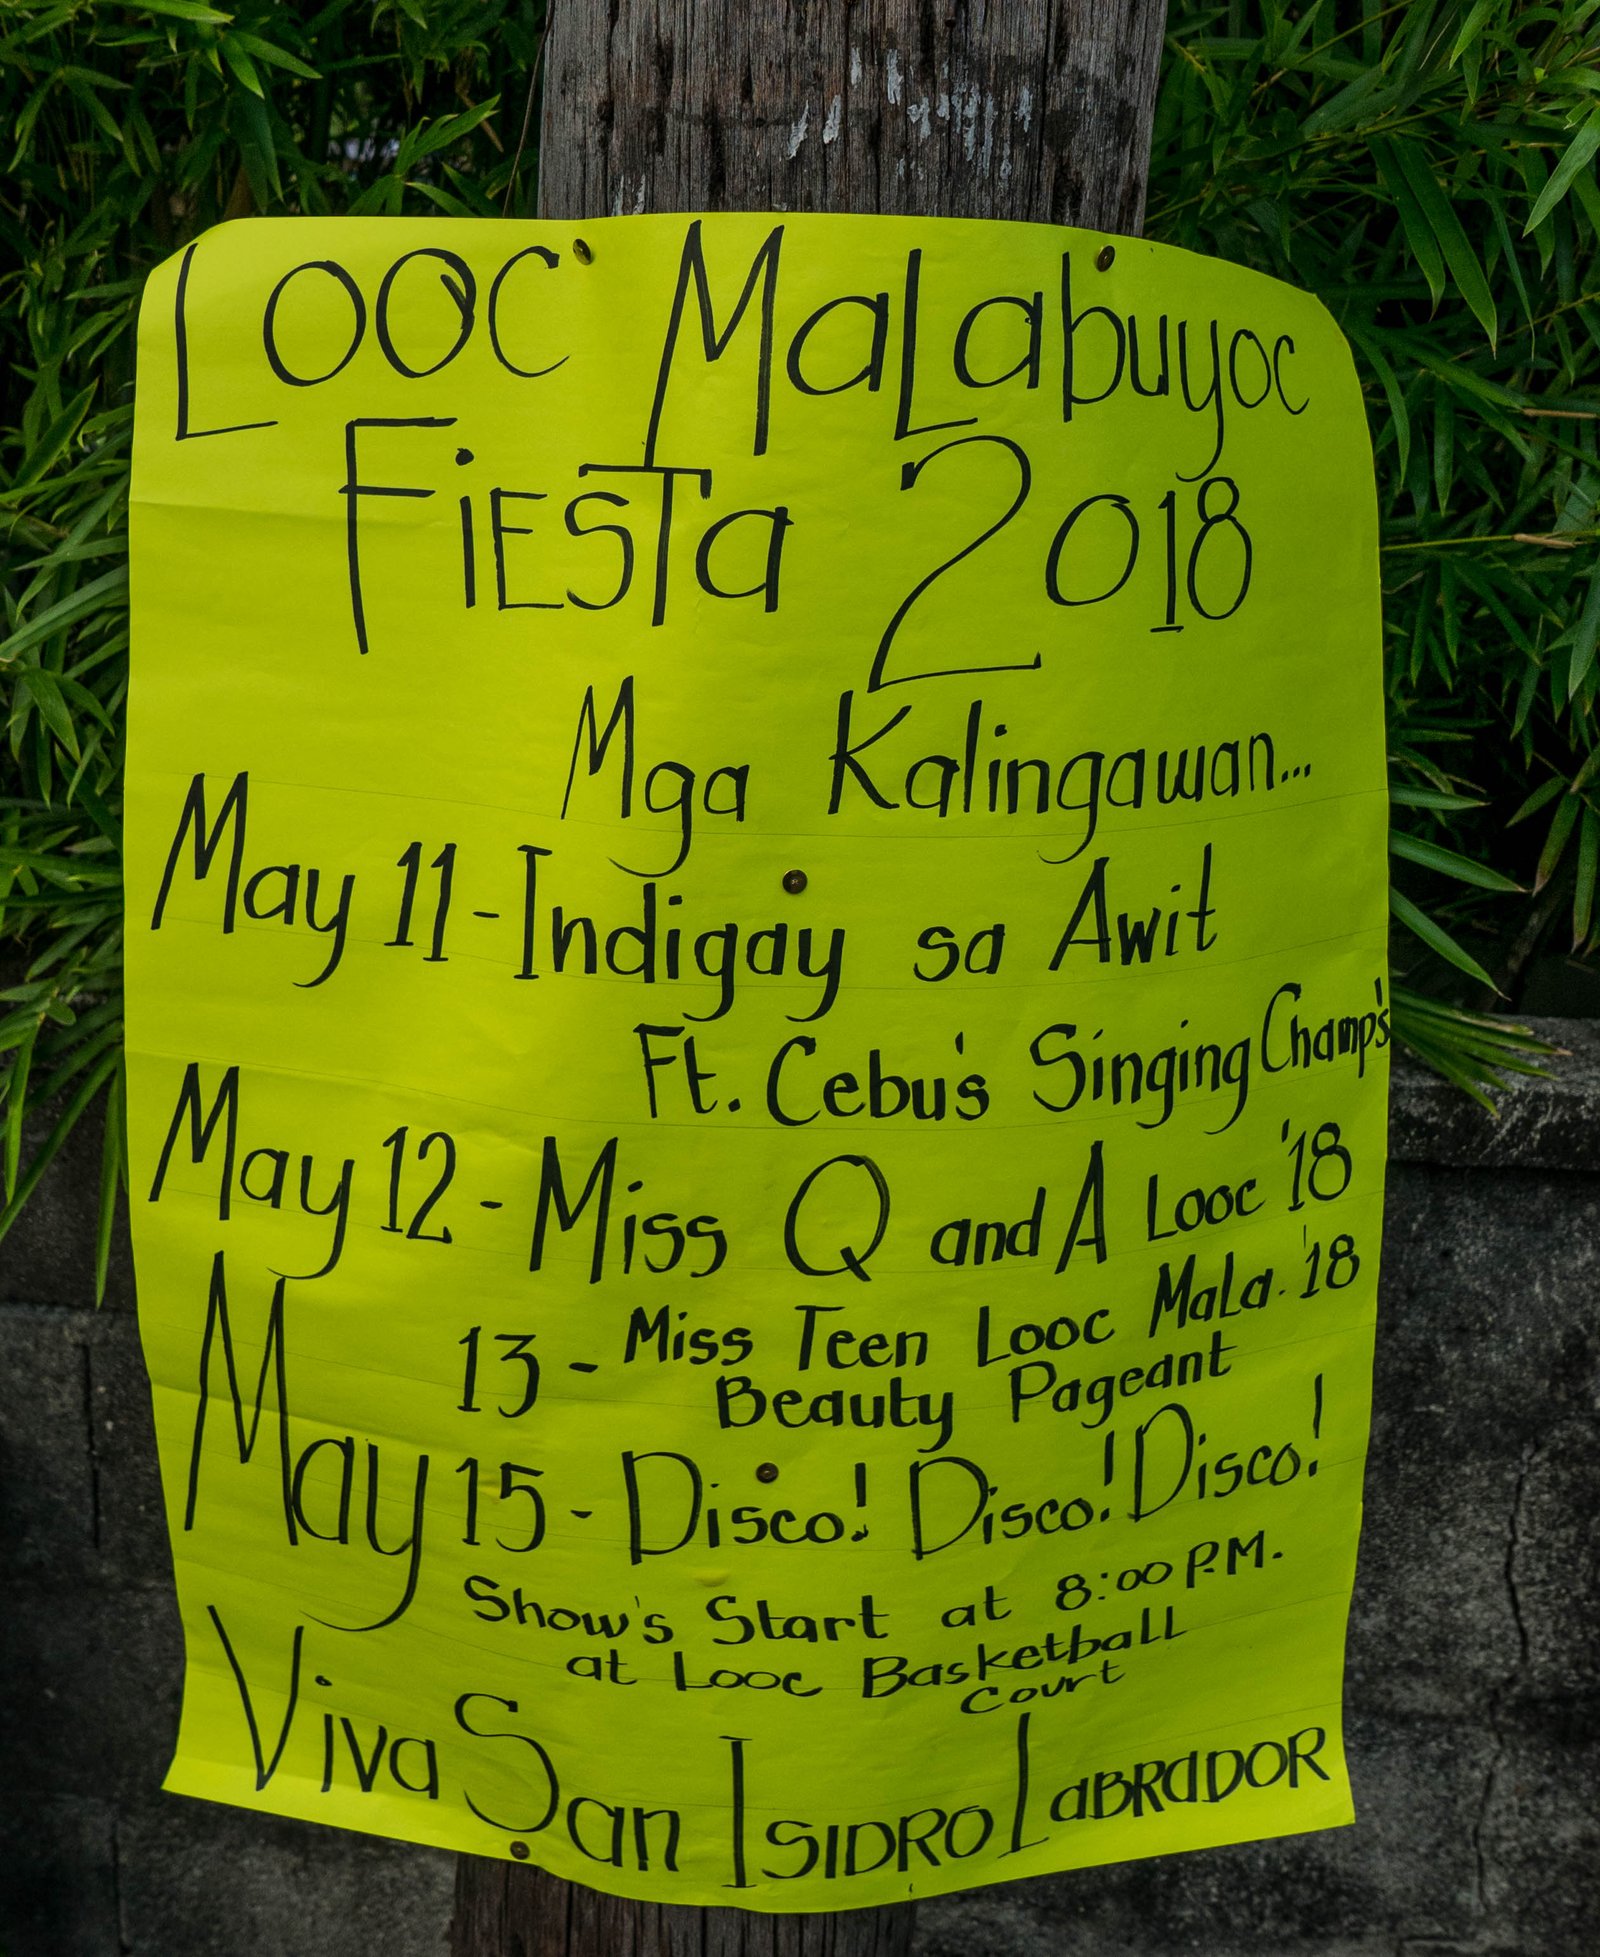 Looc MaLabuyoc
FiESTa 2018
Mga Kalingawan...
May 11 - Indigay sa Awit
Ft. Cebu's Singing Champ's
May 12 - Miss Q and A Looc '18
13 - Miss Teen Looc MaLa. '18
Beauty Pageant
May 15 - Disco! Disco! Disco!
Show's Start at 8:00 P.M.
at Looc Basketball
Court
Viva San ISIDRO LaBRaDOR